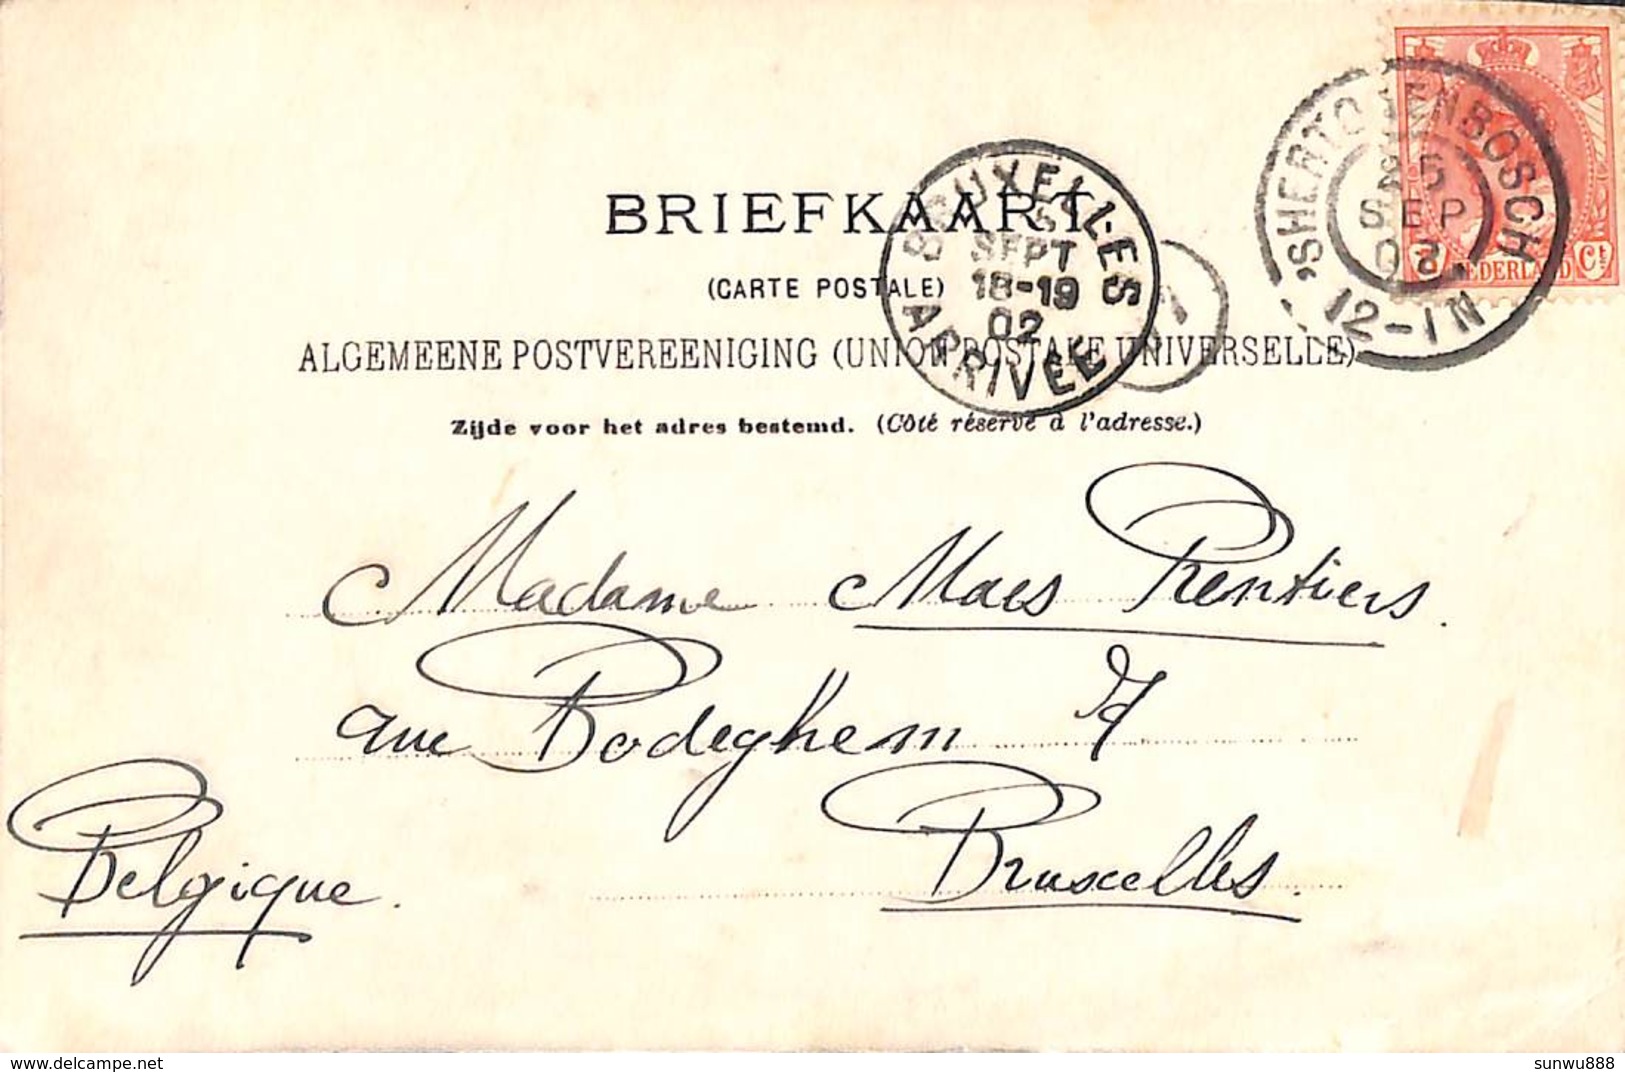 BRIEFKAART.
(CARTE POSTALE)
ALGEMEENE POSTVEREENIGING (UNION POSTALE UNIVERSELLE)
Zijde voor het adres bestemd. (Côté réservé à l'adresse.)
'SHERTOGENBOSCH
5
SEP
02
12-1N
NEDERLAND Ct
BRUXELLES
5
SEPT
18-19
02
ARRIVÉE
1
Madame Maes Rentiers.
rue Bodeghem
Bruxelles.
Belgique.
delcampe.net
sunwu888